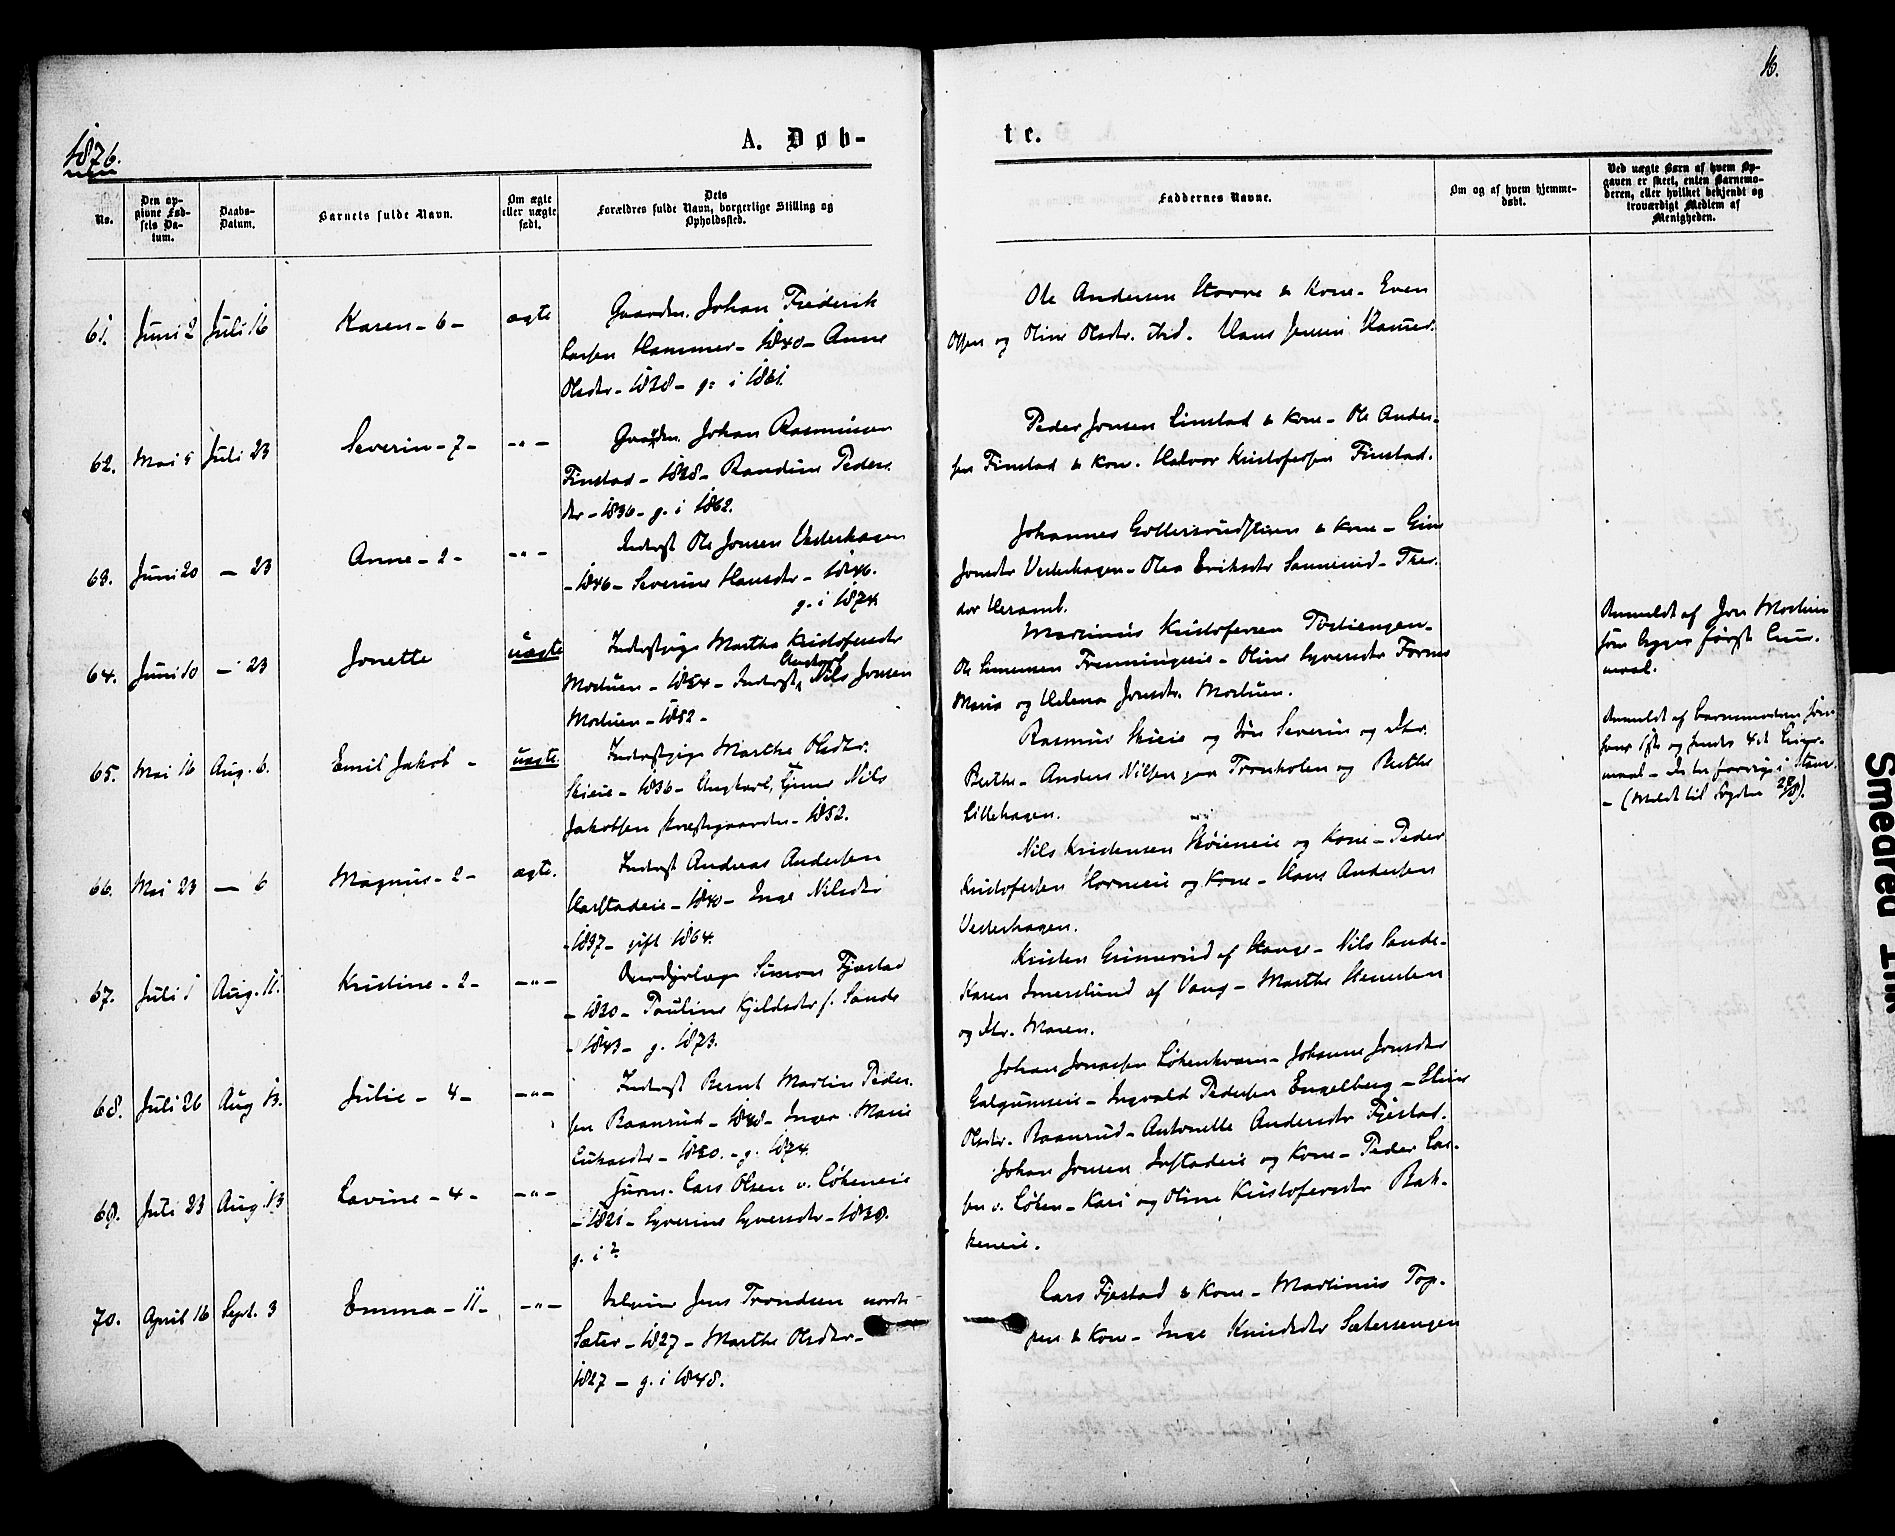 16.
1876.
A. Døb-
te.
No.
Den op-
givne Fød-
sels Da-
tum.
Daabs-
Datum.
Barnets fulde Navn.
Om ægte
eller uægte
født.
Dets
Forældres fulde Navn, borgerlige Stilling og
Opholdssted.
Faddernes Navne.
Om og af hvem hjemme-
døbt.
Ved uægte Børn af hvem Op-
gaven er skeet, enten Barnemo-
deren, eller hvilket bekjendt og
troværdigt Medlem af
Menigheden.
61. Juni 2 Juli 16 Karen - 6 - ægte
Gaardm. Johan Frederik
Larsen Hammer - 1840 - Anne
Olsdtr - 1838 - g: i 1861.
Ole Andersen Storre & Kone - Even
Olsen og Oline Olsdtr. ibid. Hans Jensen Hamer.
62. Mai 5 Juli 23 Severin - 7 - -"-
Gaardm. Johan Rasmussen
Finstad - 1828 - Randine Peders
dtr - 1836 - g. i 1862.
Peder Jonsen Linstad & Kone - Ole Ander-
sen Finstad & Kone. Halvor Kristofersen Finstad.
63. Juni 20 - 23 Anne - 2 - -"-
Inderst Ole Jonsen Vesterhagen
- 1846 - Severine Hansdtr - 1846.
g. i 1874.
Johannes & Kone -
Jonsdtr Vesterhagen - Olea Eriksdtr - Theo-
dor
64. Juni 10 - 23 Jonette uægte
Inderstpige Marthe Kristofersdtr
Mostuen - 1854 - Inderst Nils Jonsen
Mostuen - 1852 -
Martinus Kristofersen
Ole Simensen - Oline Syversdtr Fornes
Maria og Helena Jonsdtr. Mostuen.
Anmeldt af Jon Mostuen
første
maal.
65. Mai 16 Aug. 6. Emil Jakob - uægte.
Inderstpige Marthe Olsdtr.
Skieie - 1836 - Ungkarl, Tjener Nils
Jakobsen Præstegaarden - 1852.
Rasmus Skieie og Søn Severin og Dtr.
Berthe - Anders Nilsen paa Tronholen og Berthe
Lillehagen.
Anmeldt af barnemoderen
og 4de Leier-
maal -
- (Meldt til Fogden 28/8).
66. Mai 23 - 6 Magnus - 2 - ægte.
Inderst Andreas Andersen
Harstadeie - 1840 - Inge Nilsdtr
- 1837 - gift 1864.
Nils Kristensen og Kone - Peder
Kristofersen Horneeie og Kone - Hans Andersen
Vesterhagen.
67. Juli 1 Aug. 11. Kristine - 2 - -"-
Simon Fjæstad
- 1830 - Pauline Kjeldsdtr f. Sande
- 1843 - g. 1873.
Kristen Grimerud af Stange - Nils Sande -
Karen Imerslund af Vang - Marthe Stensten
og Dtr. Maren.
68. Juli 26 Aug 13. Julie - 4 - -"-
Inderst Bernt Martin Peder-
sen Raanrud - 1848 - Inger Marie
Lukasdtr - 1850. - g. 1874.
Johan Jonassen Løkenkværn - Johanne Jonsdtr
- Ingvald Pedersen Engelberg - Eline
Olsdtr. Raanrud - Antonette Andersdtr Fjæstad.
69. Juli 23 Aug. 13 Lavine - 4 - -"-
Jurm. Lars Olsen v. Løkeneie
- 1821 - Syverine Syversdtr - 1838.
g. i ?
Johan Jonsen og Kone - Peder Lar-
sen v. Løken - Kari og Oline Kristofersdtr Bak-
keneie.
70. April 16 Sept. 3 Emma - 11 - -"-
Selveier Jens Trondsen nordre
Sæter - 1827 - Marthe Olsdtr -
1827 - g. i 1848.
Lars Fjæstad & Kone - Martinus Top-
pen & Kone - Inge Knudsdtr Sæterengen
Smeared Ink